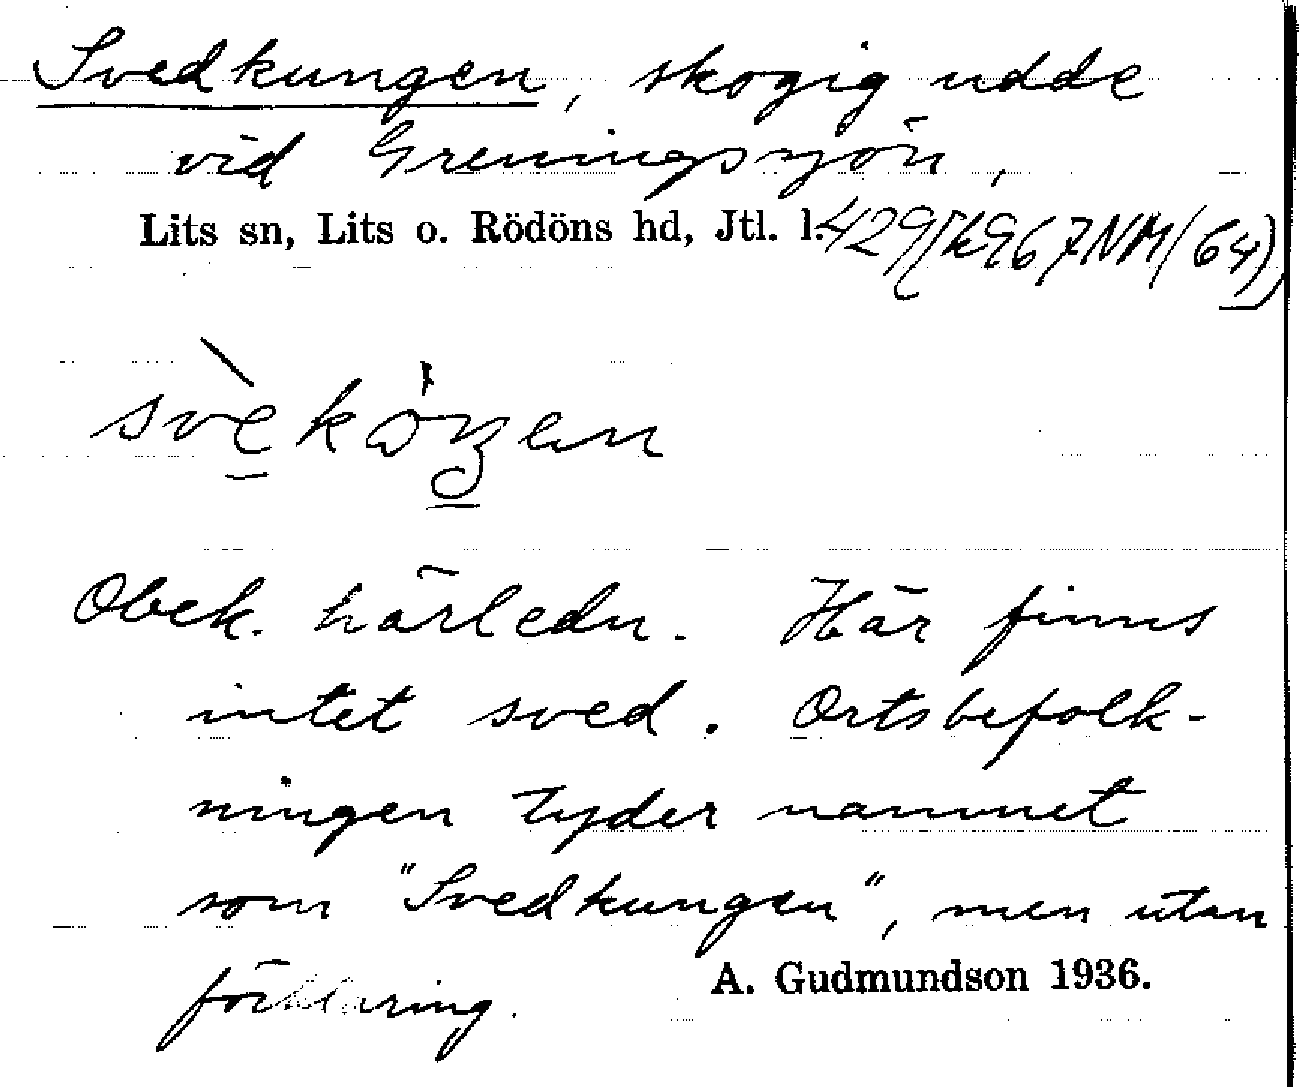 Svedkungen, skogig udde
vid Greningsjön,
Lits sn, Lits o. Rödöns hd, Jtl. l.
Obek. härledn. Här finns
intet sved. Ortsbefolk-
ningen tyder namnet
som "Svedkungen", men utan
förklaring.
A. Gudmundson 1936.